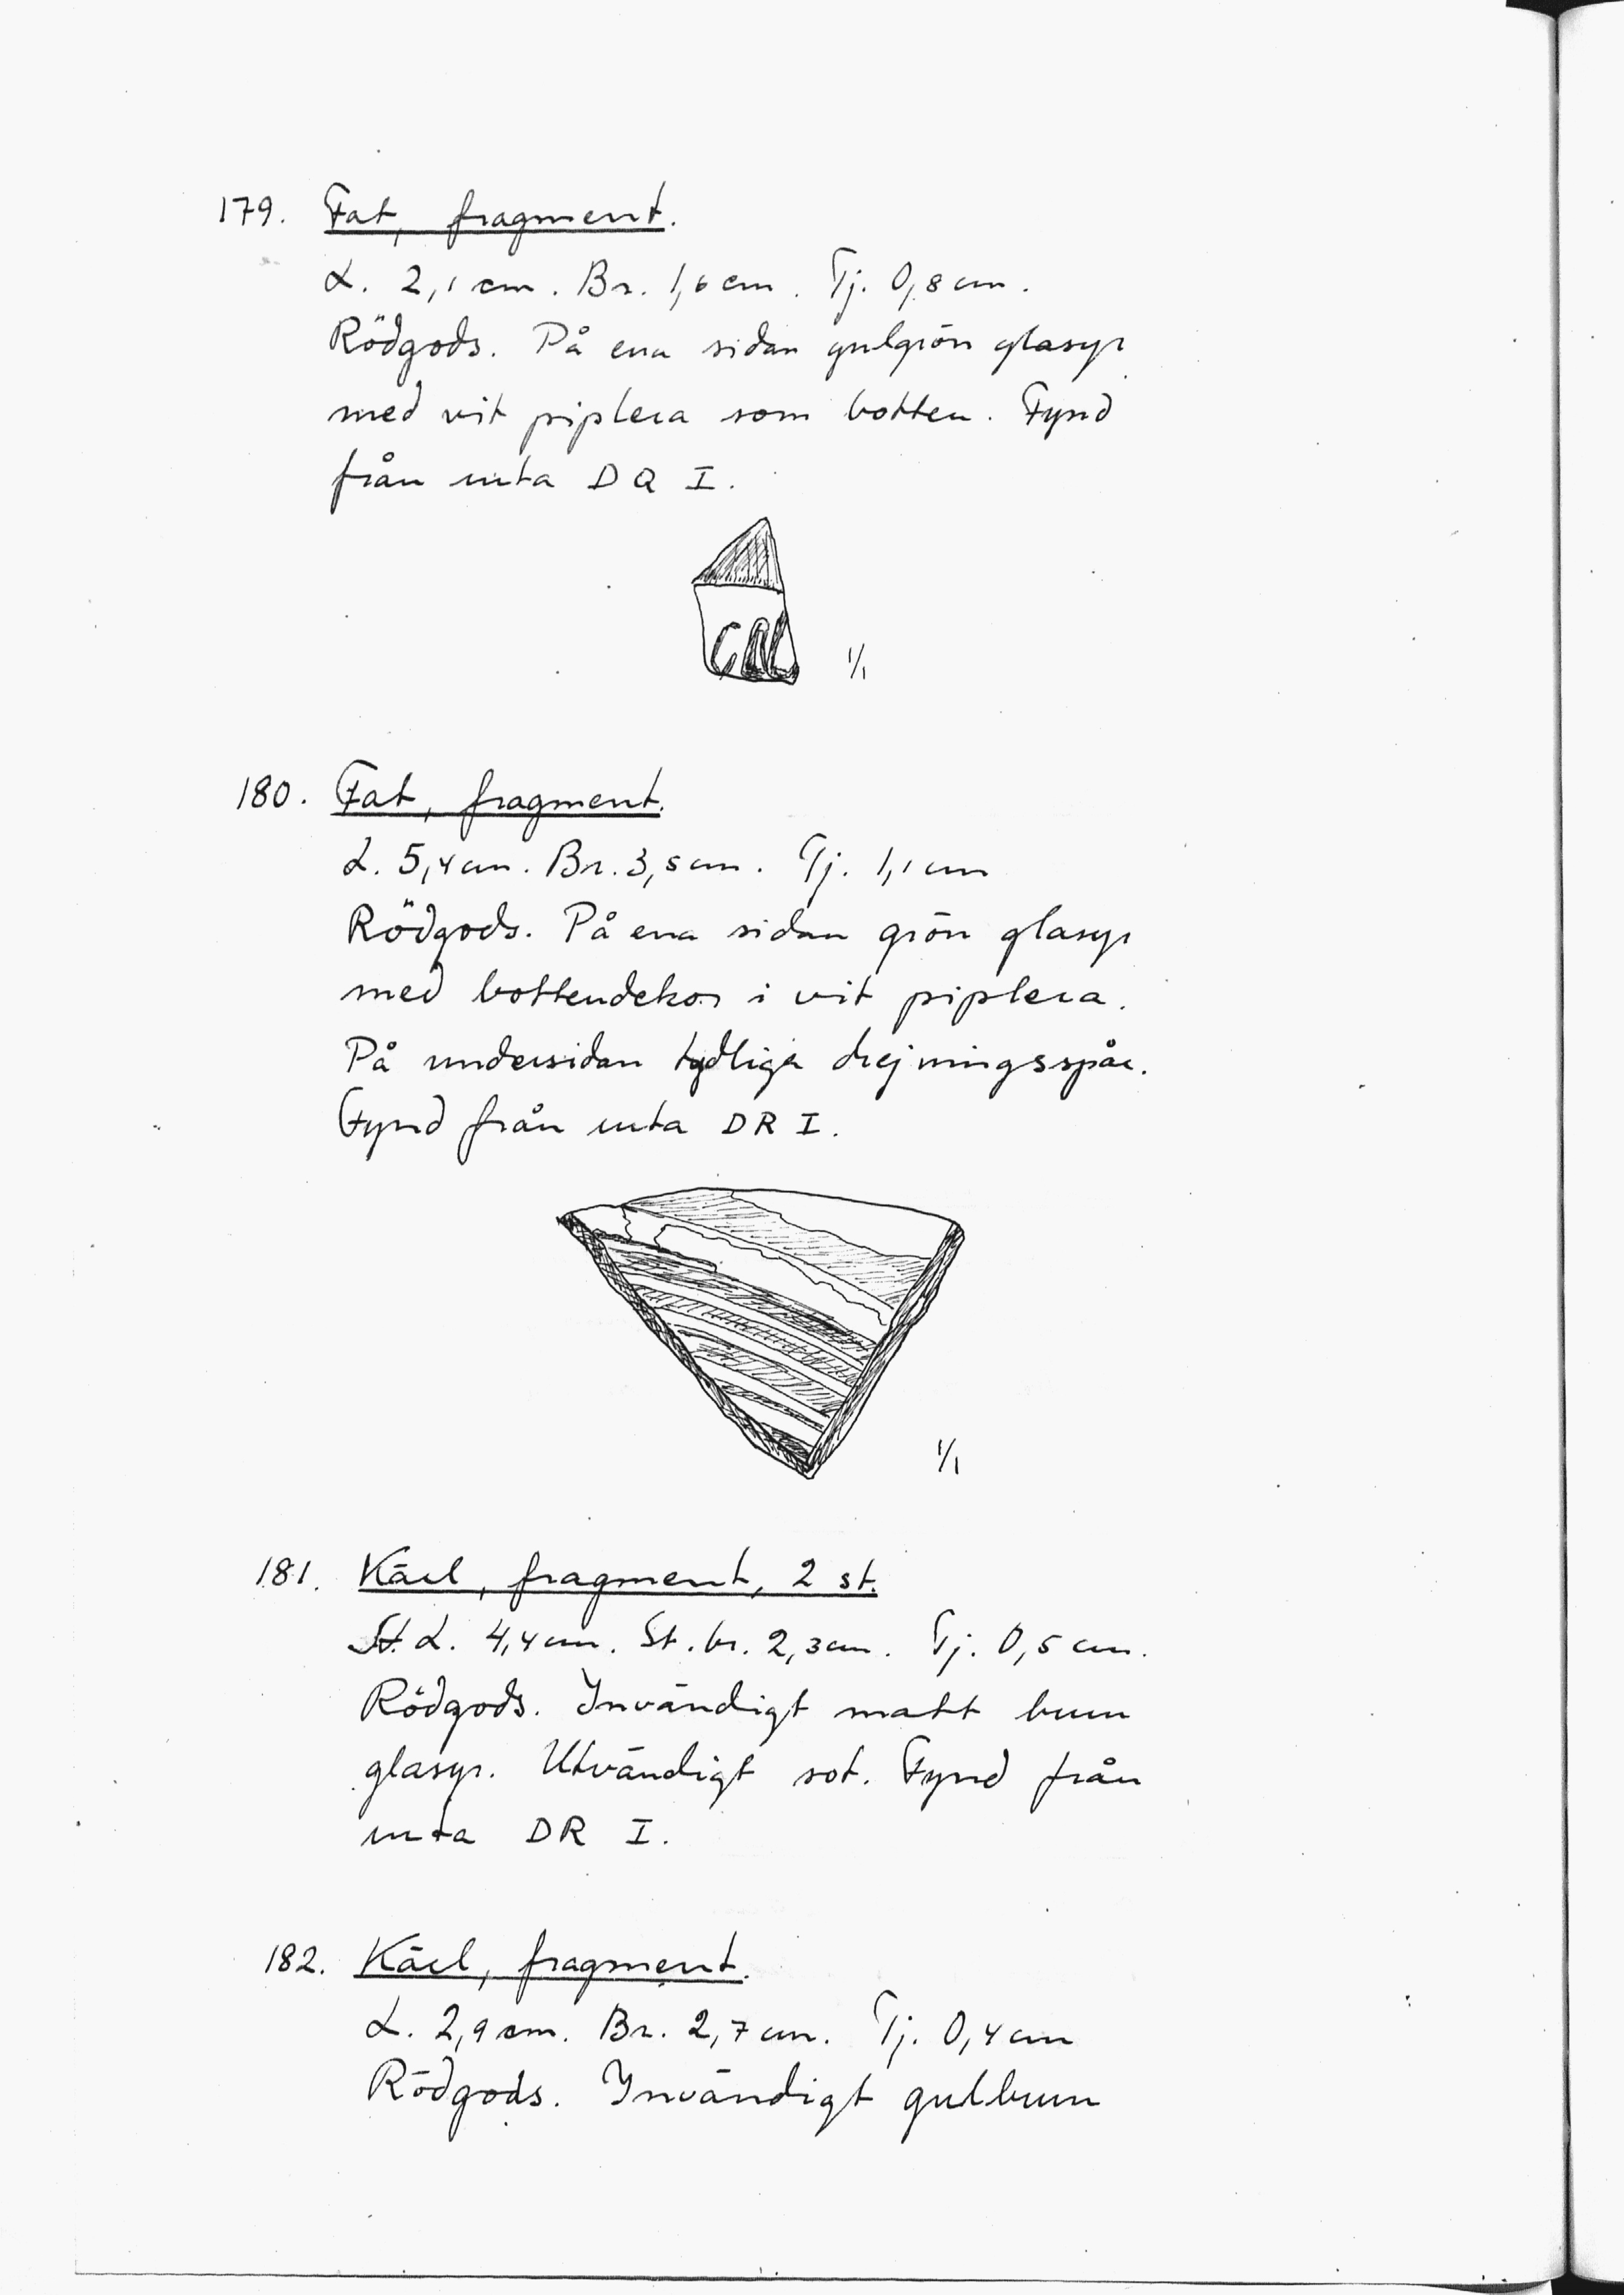 179. Fat, fragment.
L. 2,1 cm. Br. 1,6 cm. Tj. 0,8 cm.
Rödgods. På ena sidan gulgrön glasyr
med vit piplera som botten. Fynd
från ruta DQ I.
1/1
180. Fat, fragment.
L. 5,4 cm. Br. 3,5 cm. Tj. 1,1 cm
Rödgods. På ena sidan grön glasyr
med bottendekor i vit piplera.
På undersidan tydliga drejningsspår.
Fynd från ruta DR I.
1/1
181. Kärl, fragment, 2 st.
St. L. 4,4 cm. St. br. 2,3 cm. Tj. 0,5 cm.
Rödgods. Invändigt matt brun
glasyr. Utvändigt sot. Fynd från
ruta DR I.
182. Kärl, fragment.
L. 2,9 cm. Br. 2,7 cm. Tj. 0,4 cm
Rödgods. Invändigt gulbrun